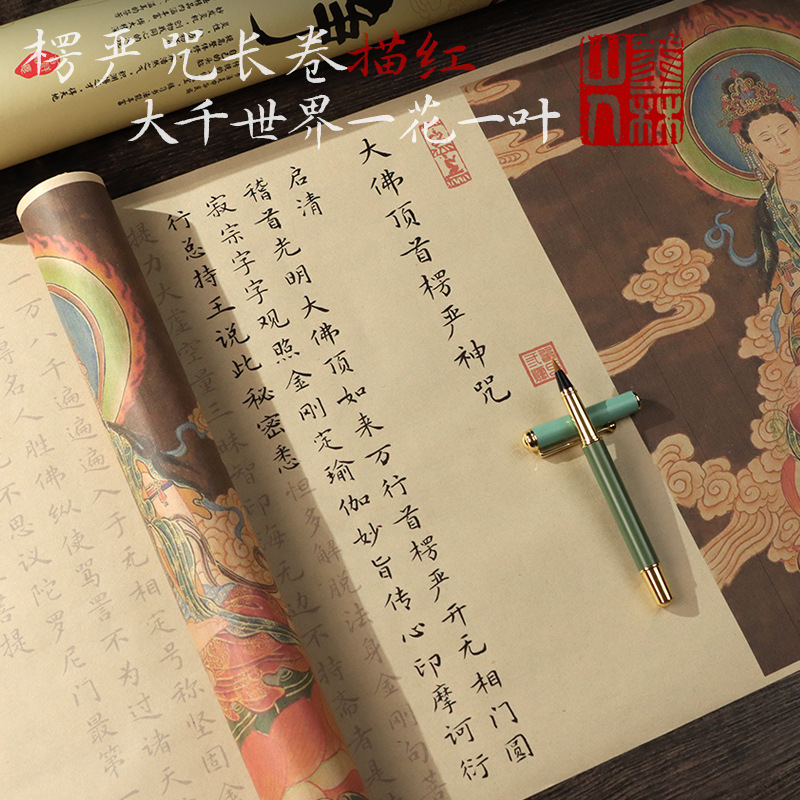 楞严咒长卷描红
大千世界一花一叶
大佛顶首楞严神咒
启清
稽首光明大佛顶如来万行首楞严开无相门圆
寂宗字字观照金刚定瑜伽妙旨传心印摩诃衍
行总持王说此秘密悉怛多解脱法身金刚句菩
提力大虚空量三昧智印海无边不持斋者是
一万八千遍遍遍入于无相定号称坚固金
得名人胜佛纵使骂詈不为过诸天
不思议陀罗尼门最第一
菩提